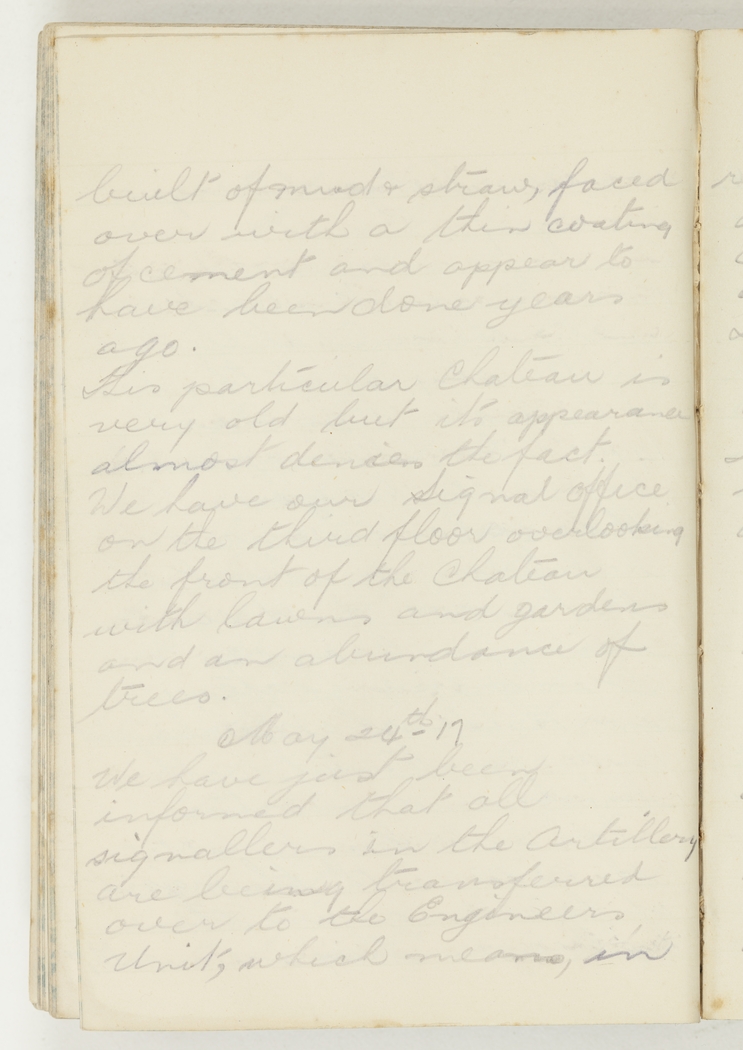 built of mud & straw, faced
over with a thin coating
of cement and appear to
have been done years
ago.
This particular Chateau is
very old but its appearance
almost denies the fact.
We have our Signal office
on the third floor overlooking
the front of the Chateau
with lawns and gardens
and an abundance of
trees.
May 24th-17
We have just been
informed that all
signallers in the Artillery
are being transferred
over to the Engineers
Unit, which means, in